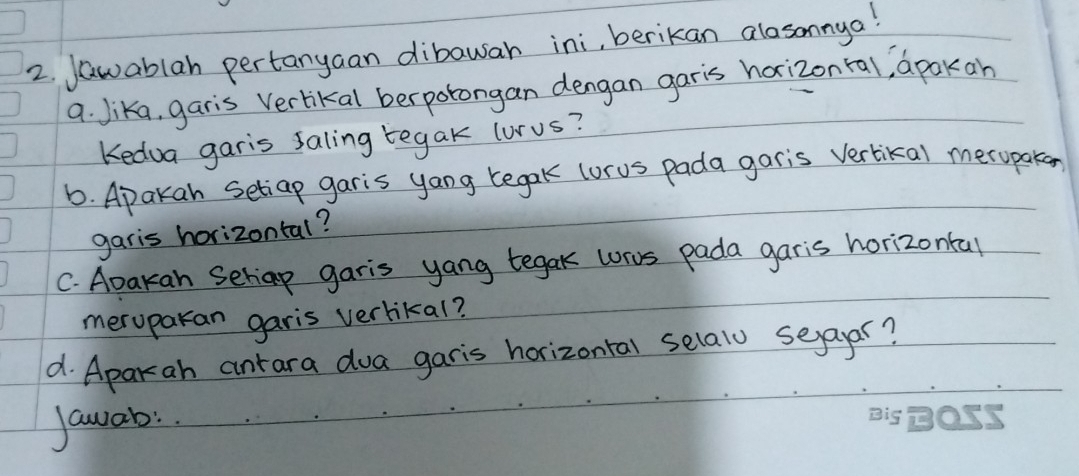 2. Jawablah pertanyaan dibawah ini, berikan alasannya!
a. Jika, garis vertikal berpotongan dengan garis horizontal, apakah
kedua garis saling tegak lurus?
b. Apakah setiap garis yang tegak lurus pada garis vertikal merupakan
garis horizontal?
c. Apakah setiap garis yang tegak lurus pada garis horizontal
merupakan garis vertikal?
d. Apakah antara dua garis horizontal selalu sejajar?
Jawab: . . . . . . . . . . . .
Big BOSS